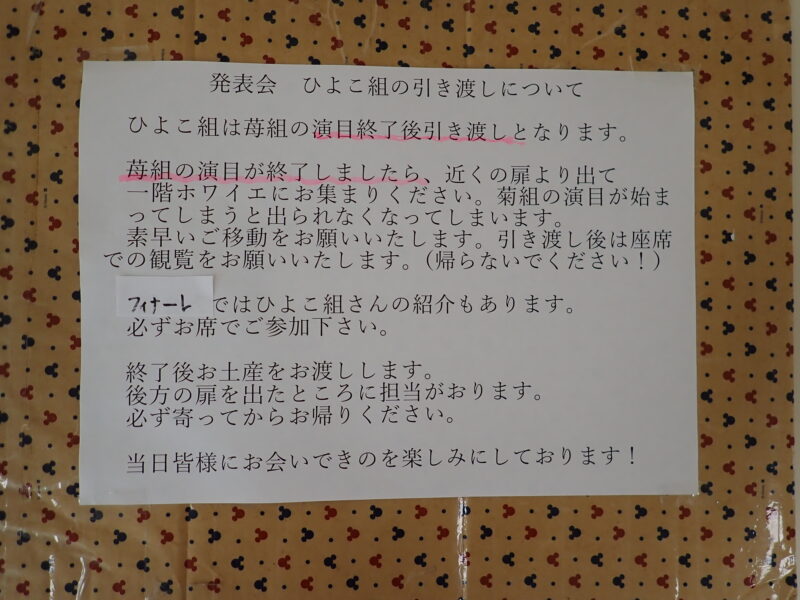 発表会　ひよこ組の引き渡しについて
ひよこ組は苺組の演目終了後引き渡しとなります。
苺組の演目が終了しましたら、近くの扉より出て
一階ホワイエにお集まりください。菊組の演目が始ま
ってしまうと出られなくなってしまいます。
素早いご移動をお願いいたします。引き渡し後は座席
での観覧をお願いいたします。(帰らないでください！)
フィナーレではひよこ組さんの紹介もあります。
必ずお席でご参加下さい。
終了後お土産をお渡しします。
後方の扉を出たところに担当がおります。
必ず寄ってからお帰りください。
当日皆様にお会いできのを楽しみにしております！